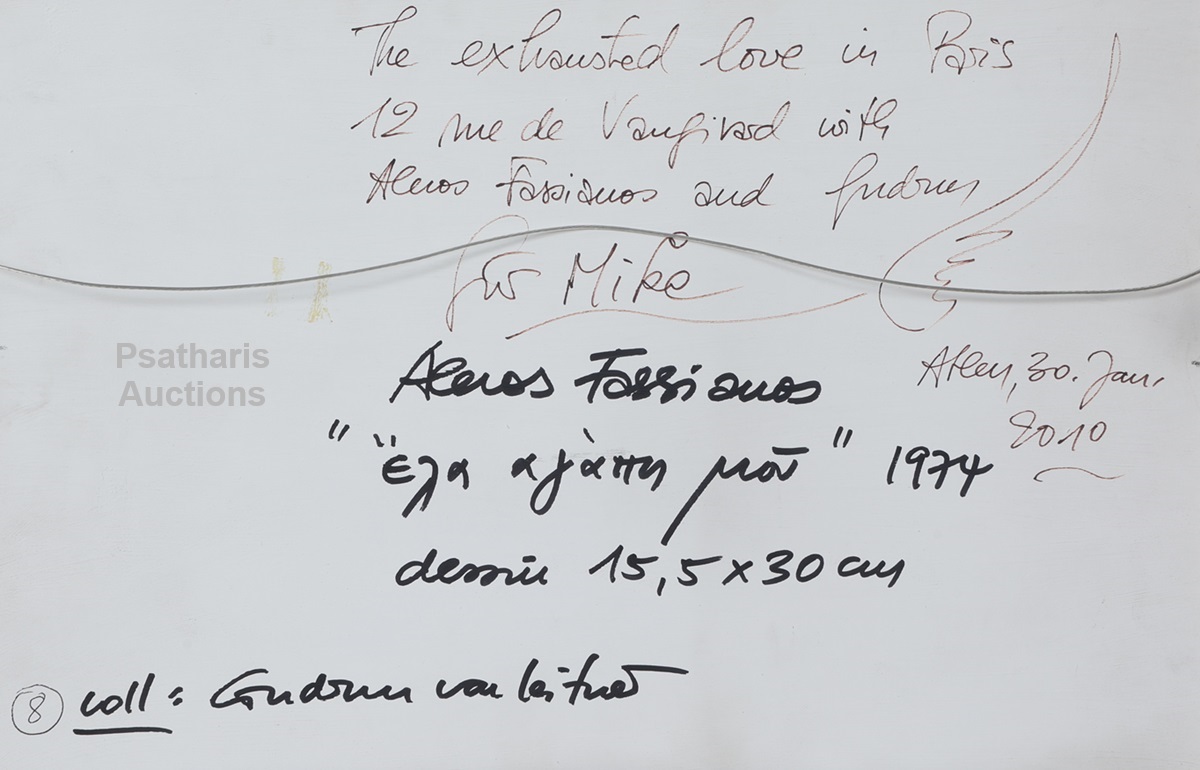 The exhausted love in Paris
12 rue de Vaugirard with
Alecos Fassianos and Gudrun
für Mike
Athen, 30. Jan.
2010
Psatharis
Auctions
Alecos Fassianos
" ἔλα αγὰπη μοῦ " 1974
dessin 15,5 x 30 cm
8 coll: Gudrun von Leitner